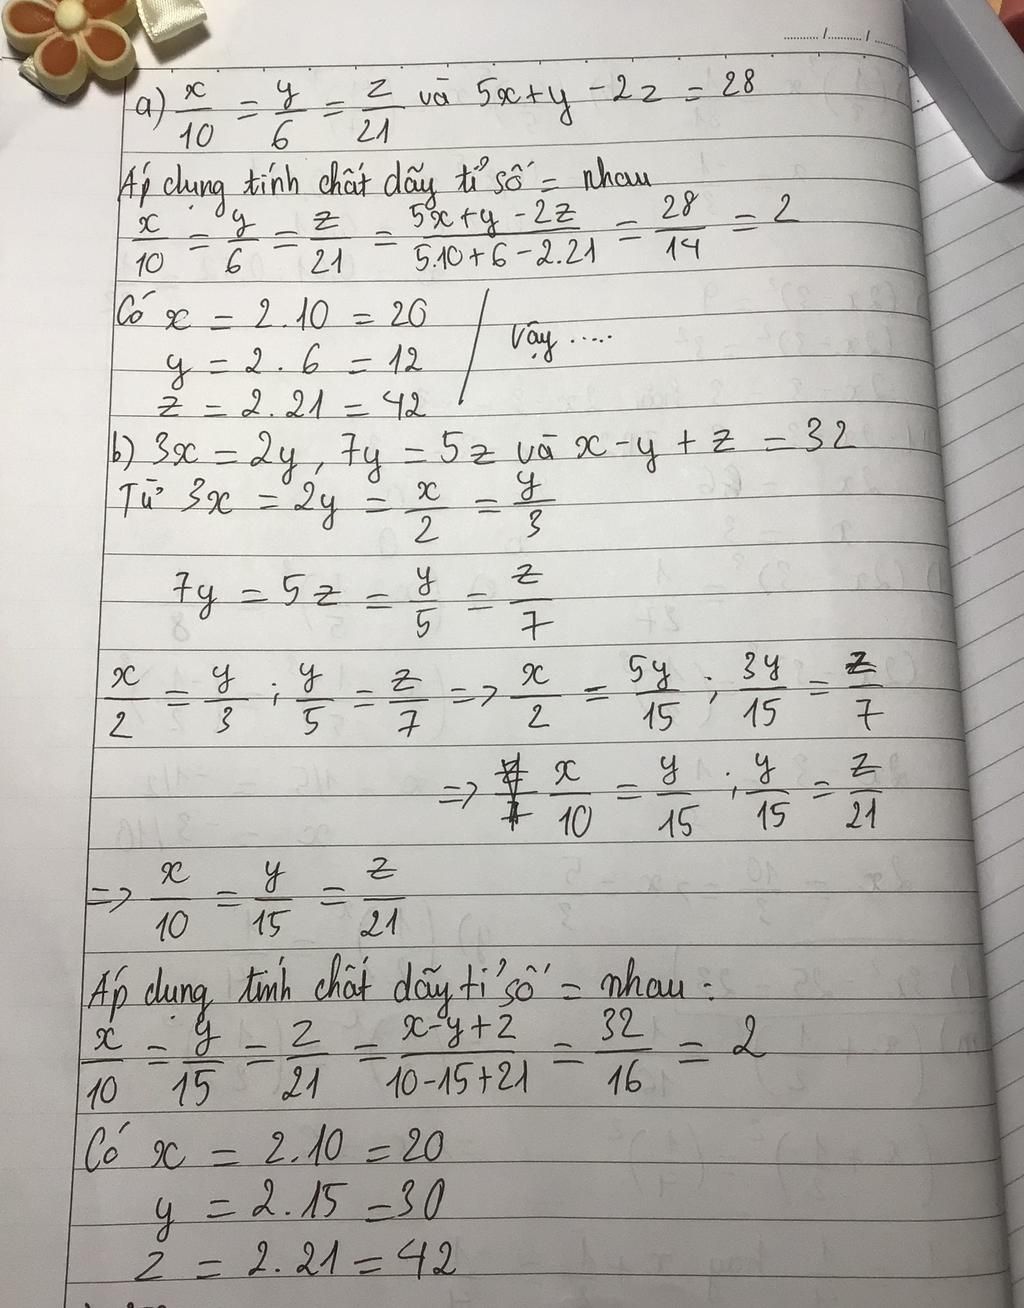 a) x/10 = y/6 = z/21 và 5x+y-2z = 28
Áp dụng tính chất dãy tỉ số = nhau
x/10 = y/6 = z/21 = (5x+y-2z)/(5.10+6-2.21) = 28/14 = 2
Có x = 2.10 = 20
y = 2.6 = 12
z = 2.21 = 42
Vậy .....
b) 3x = 2y, 7y = 5z và x-y+z = 32
Từ 3x = 2y = x/2 = y/3
7y = 5z = y/5 = z/7
x/2 = y/3 ; y/5 = z/7 => x/2 = 5y/15 ; 3y/15 = z/7
=> x/10 = y/15 ; y/15 = z/21
=> x/10 = y/15 = z/21
Áp dụng tính chất dãy tỉ số = nhau :
x/10 = y/15 = z/21 = (x-y+z)/(10-15+21) = 32/16 = 2
Có x = 2.10 = 20
y = 2.15 = 30
z = 2.21 = 42